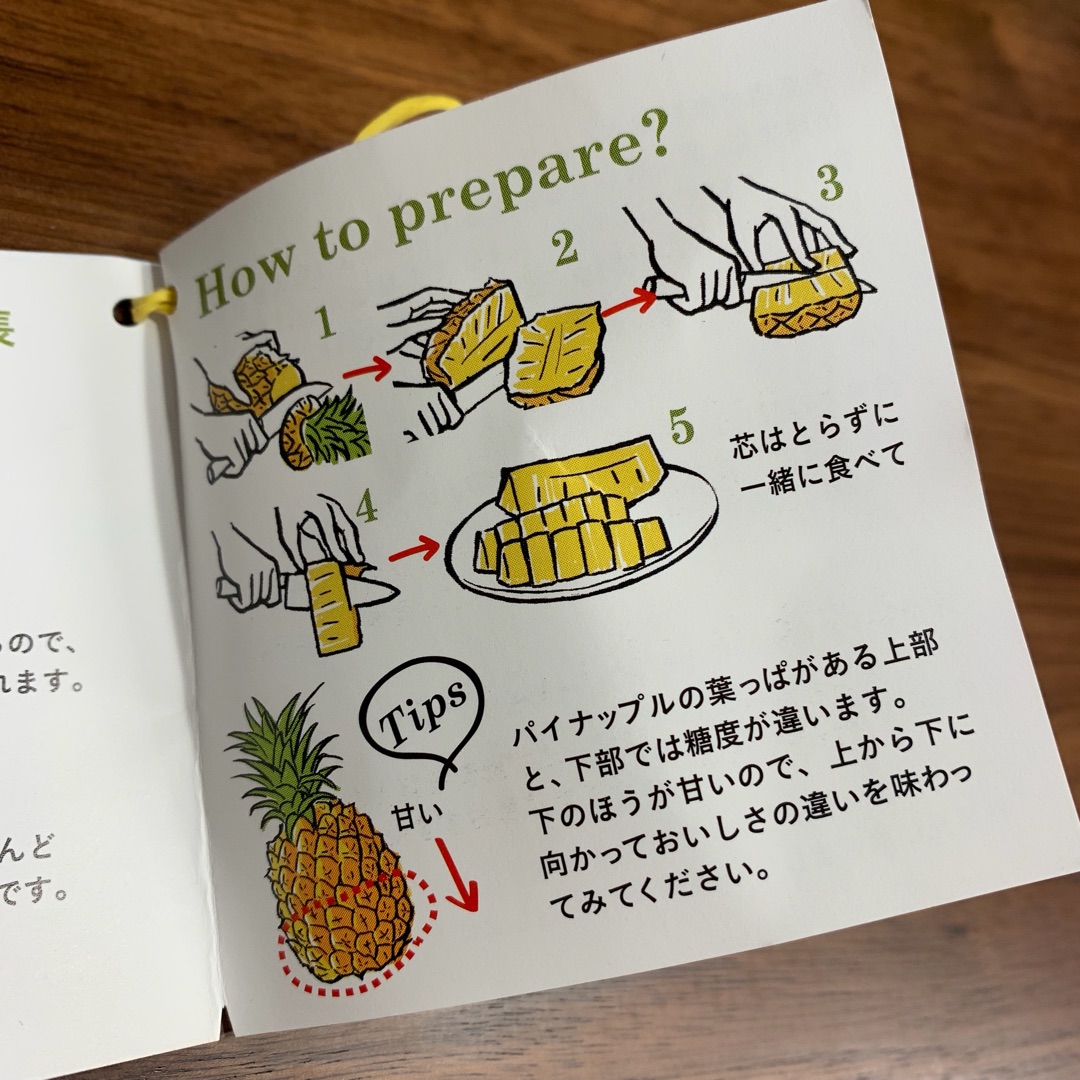 ので、
れます。
んど
です。
How to prepare?
1
2
3
4
5
芯はとらずに
一緒に食べて
Tips
甘い
パイナップルの葉っぱがある上部
と、下部では糖度が違います。
下のほうが甘いので、上から下に
向かっておいしさの違いを味わっ
てみてください。